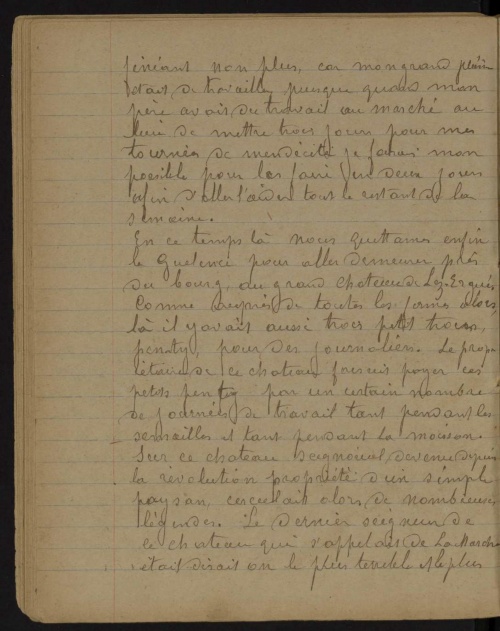 fénéant non plus, car mon grand plaisir
était de travaille, puisque quand mon
père avait du travail au marché au
lieu de mettre trois jours pour mes
tournées de mendécité je faisai mon
possible pour les faire en deux jours
afin d'aller l'aider tout le restant de la
semaine.
En ce temps là nous quittames enfin
le Guelenec pour aller demeurer près
du bourg, au grand chateau de Lez-Ergué
Comme auprès de toutes les fermes alors,
là il y avait aussi trois petits trous,
penty, pour des journaliers. Le propri
étaire de ce chateau faisait payer ces
petits penty par un certain nombre
de journées de travail tant pendant les
semailles et tant pendant la moisson.
Sur ce chateau seigneurial devenu depuis
la révolution propriété d'un simple
paysan, circulait alors de nombreuses
légendes. Le dernier seigneur de
ce chateau qui s'appelait de La Marche
était disait on le plus terrible et le plus